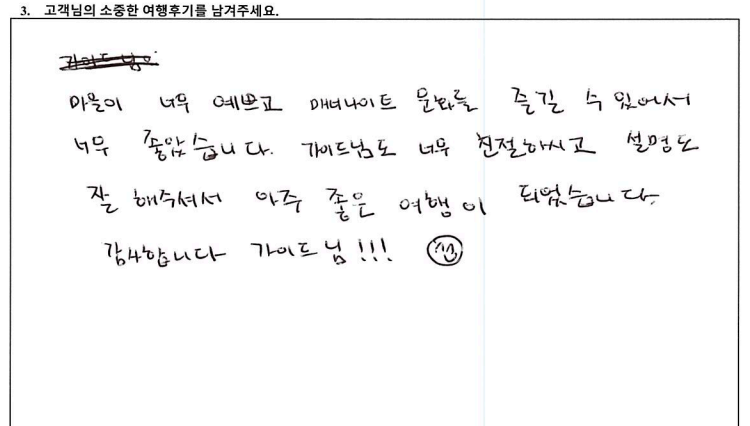 3. 고객님의 소중한 여행후기를 남겨주세요.
가이드님이
마을이 너무 예쁘고 매너나이트 문화를 즐길 수 있어서
너무 좋았습니다. 가이드님도 너무 친절하시고 설명도
잘 해주셔서 아주 좋은 여행이 되었습니다.
감사합니다 가이드님!!!